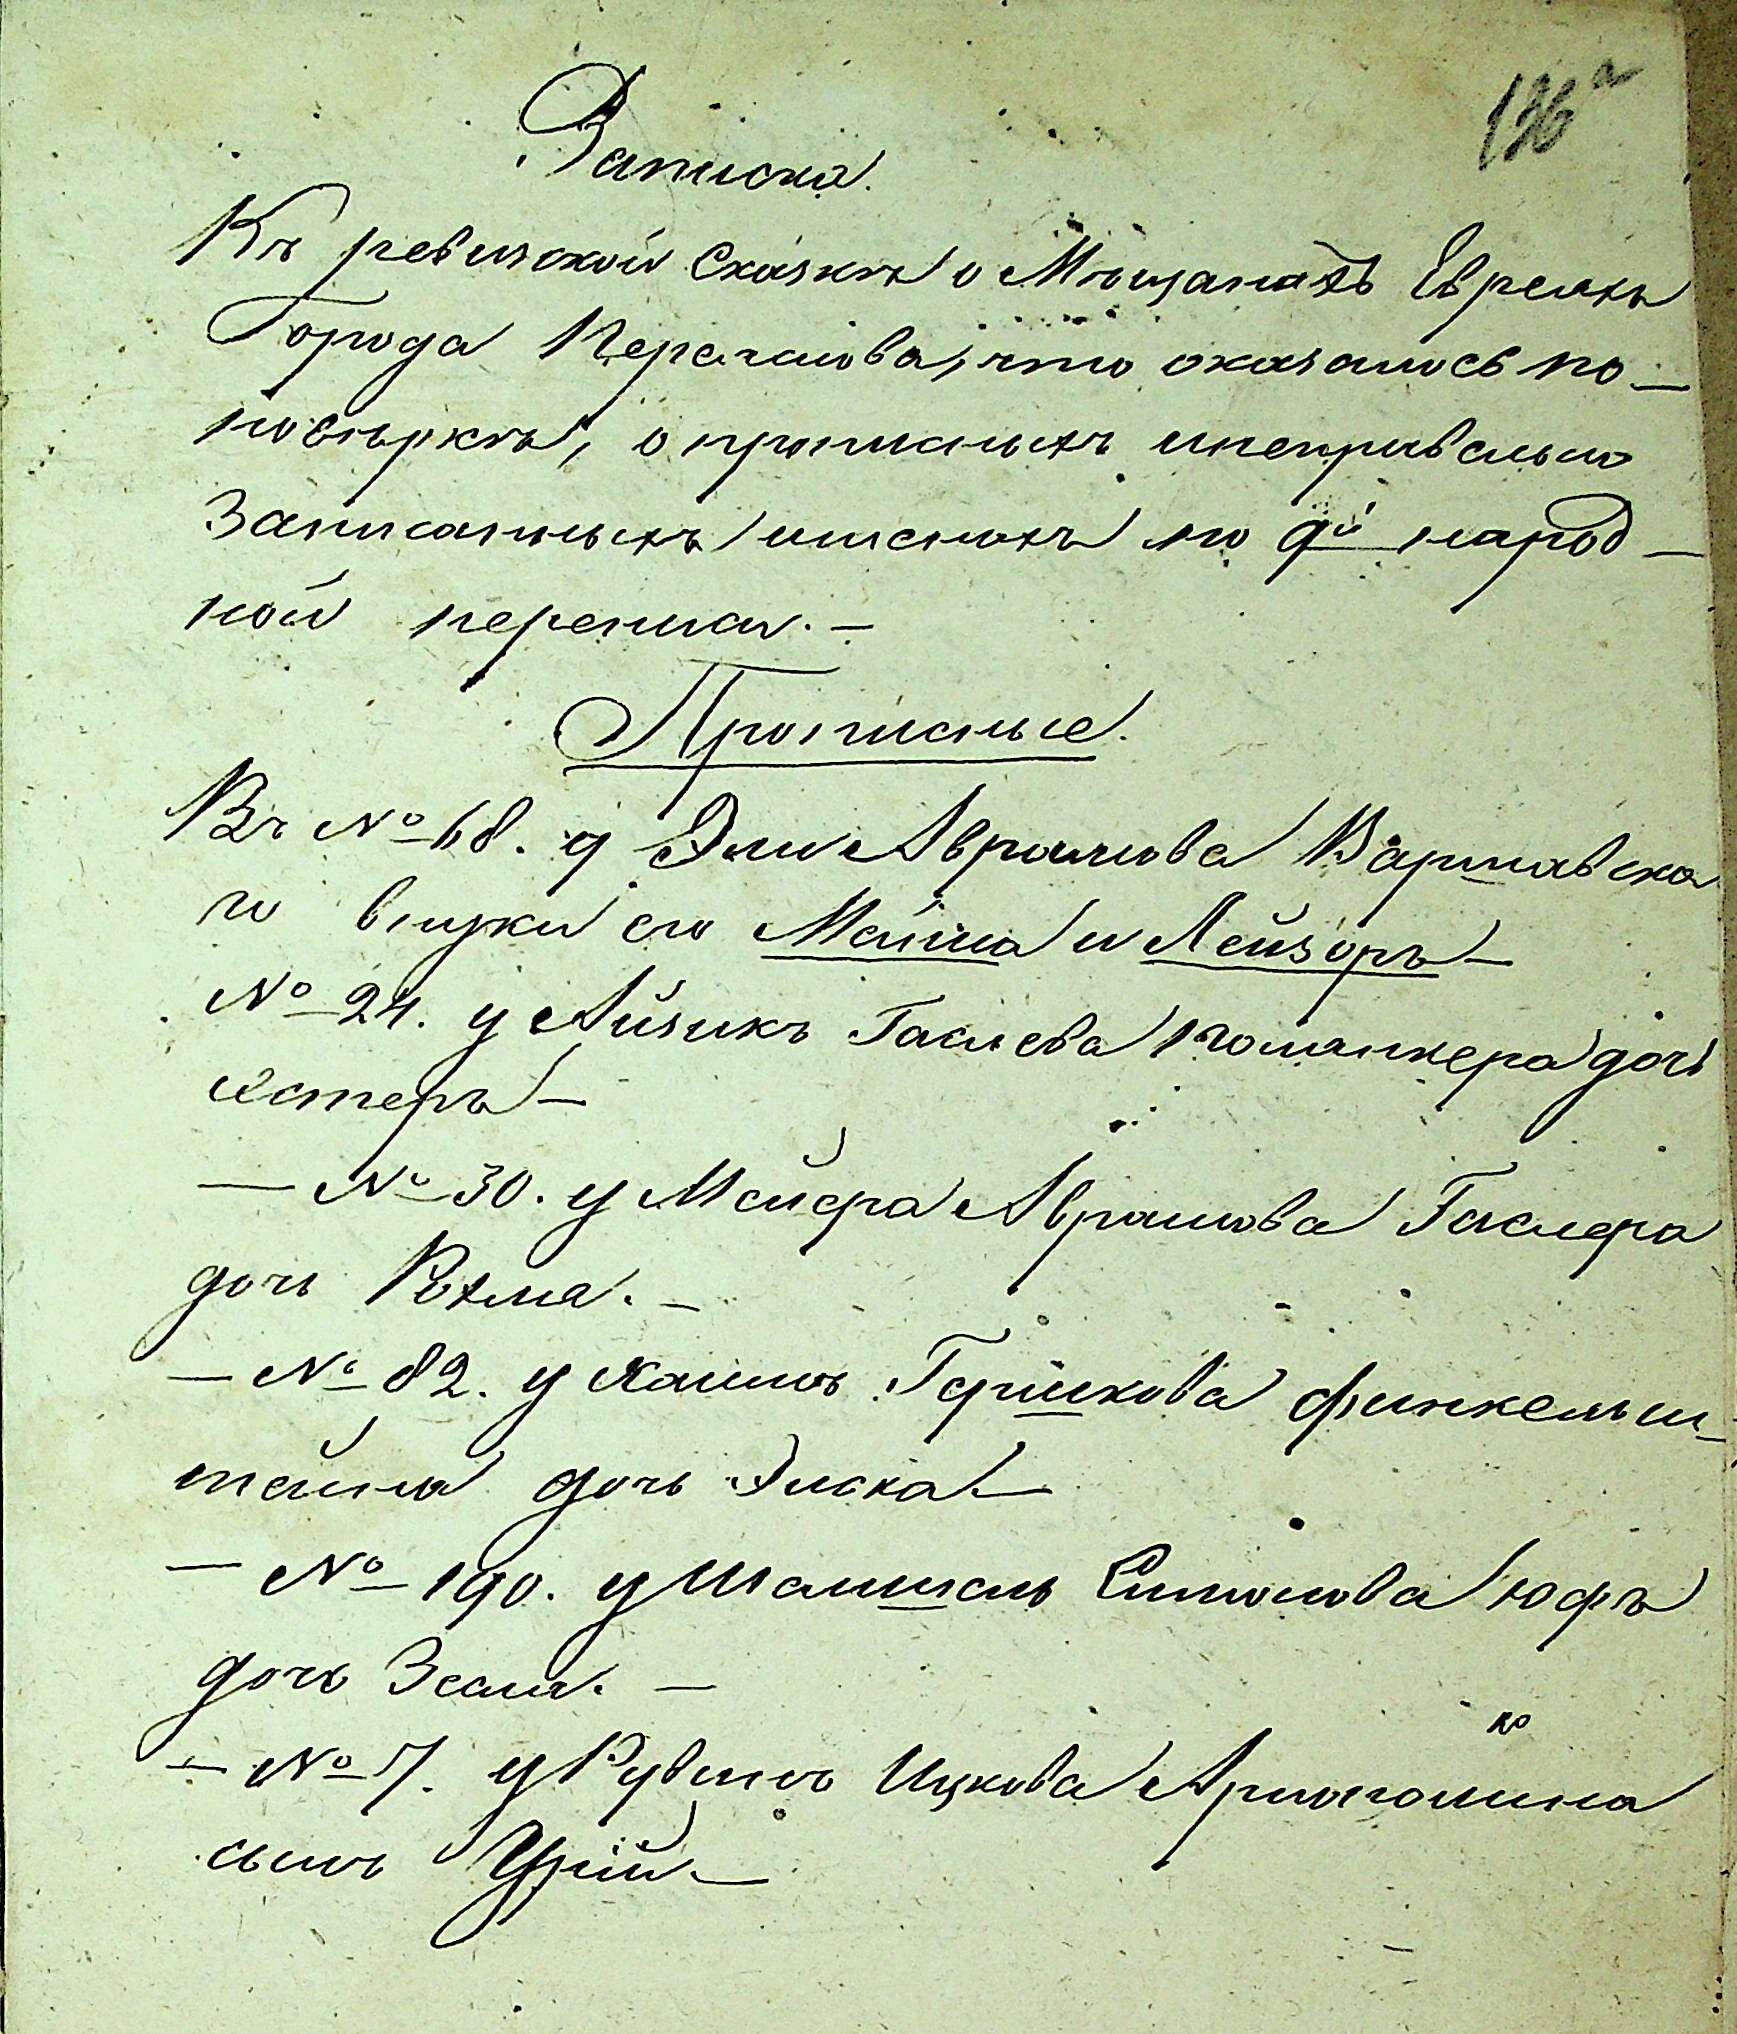 136 а
Записка.
Къ ревизской сказкѣ о Мѣщанахъ Евреяхъ
Города Переяслова, что оказалось по
повѣркѣ, о прописныхъ инеправельно
Записанныхъ имѣнахъ по 9й народ-
ной переписи. –
Прописные.
Въ № 68. у Эли Аврамова Варшавска
го внуки его Мойша и Лейзоръ –
№ 24. у Айзикъ Гасиева дочь
естеръ –
– № 30. у Мейера Аврамова Гаслера
дочь Рохля. –
– № 82. у Хаимъ Гершкова Финкельш-
тейна дочь Элька –
– № 190. у Шамшель Симонова Юфъ
дочь Зелда. –
ко
– № 7. у Рувинъ Ицкова
сынъ Урій –